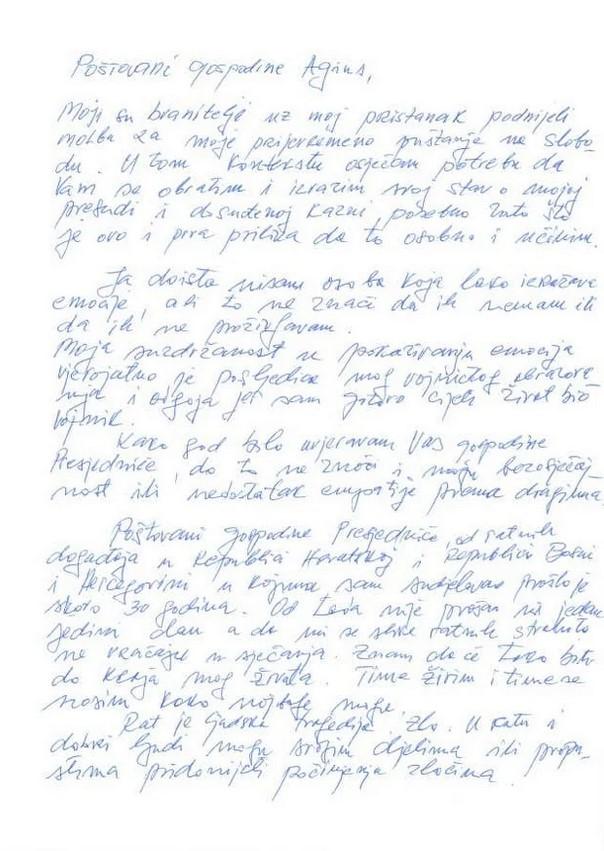 Poštovani gospodine Agius,
Moji su branitelji uz moj pristanak podnijeli
molba za moje prijevremeno puštanje na slobo-
du. U tom kontekstu osjećam potrebu da
Vam se obratim i izrazim svoj stav o mojoj
presudi i dosuđenoj kazni, posebno zato što
je ovo i prva prilika da to osobno i učinim.
Ja doista nisam osoba koja lako izražava
emocije, ali to ne znači da ih nemam ili
da ih ne proživljavam.
Moja suzdržanost u pokazivanju emocija
vjerojatno je posljedica mog vojničkog obrazova-
nja i odgoja jer sam gotovo cijeli život bio
vojnik.
Kako god bilo uvjeravam Vas gospodine
Presjedniče, da to ne znači i moju bezosjećaj-
nost ili nedostatak empatije prema drugima.
Poštovani gospodine Presjedniče, od ratnih
događaja u Republici Hrvatskoj i Republici Bosni
i Hercegovini u kojima sam sudjelovao prošlo je
skoro 30 godina. Od tada nije prošao ni jedan
jedini dan a da mi se slike ratnih strahota
ne vraćaju u sjećanja. Znam da će tako biti
do kraja mog života. Time živim i time se
nosim kako najbolje mogu.
Rat je ljudska tragedija, zlo. U ratu i
dobri ljudi mogu svojim djelima ili propu-
stima pridonijeti počinjenju zločina.